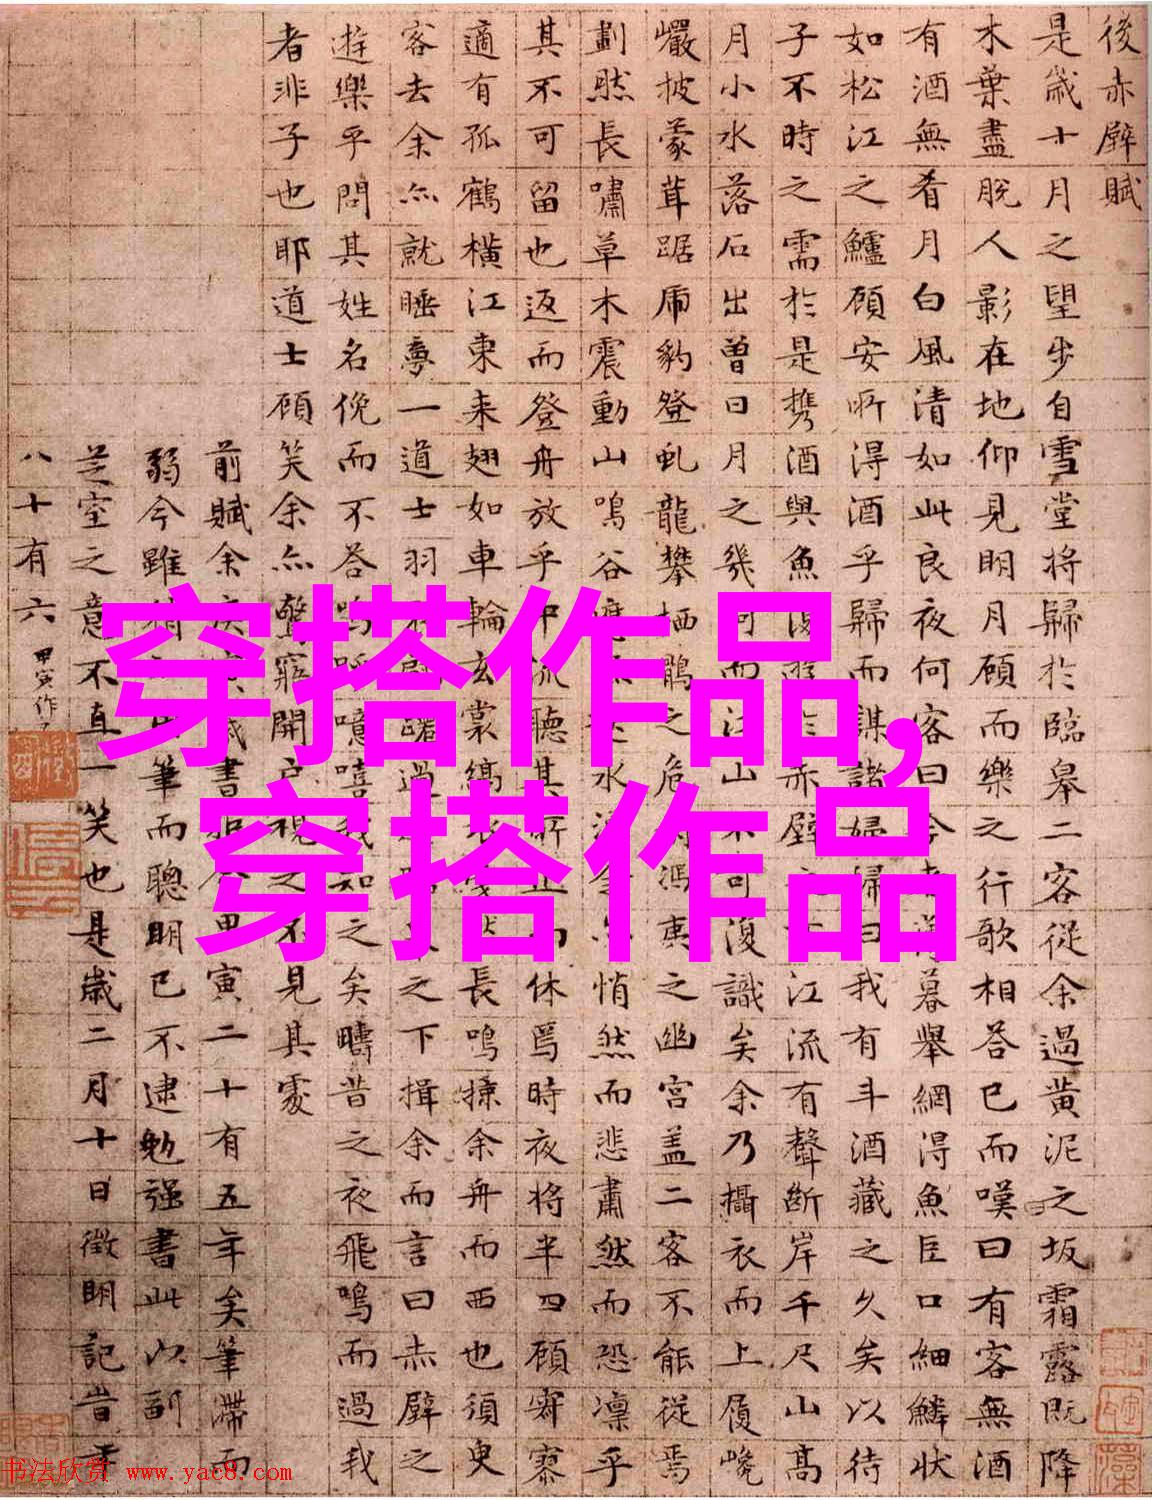 後赤壁賦
是歲十月之望步自雪堂將歸於臨皋二客從余過黄泥之坂霜露既降
木葉盡脫人影在地仰見明月顧而樂之行歌相答已而嘆曰有客無酒
有酒無肴月白風清如此良夜何客曰今暮舉網得魚巨口細鱗狀
如松江之鱸顧安所得酒乎歸而謀諸婦婦曰我有斗酒藏之久矣以待
子不時之需於是攜酒與魚於赤壁江流有聲斷岸千尺山高
月小水落石出曾日月之幾何而江山不可復識矣余乃攝衣而上履巉
巖披蒙茸踞虎豹登虬龍攀栖鶻之危馮夷之幽宮蓋二客不能從焉
劃然長嘯草木震動山鳴谷水余亦悄然而悲肅然而恐凜乎
其不可留也返而登舟放乎中流聽其所止而休焉時夜將半四顧寂寥
適有孤鶴橫江東來翅如車輪玄裳縞衣長鳴掠余舟而西也須臾
客去余亦就睡夢一道士羽過之下揖余而言曰赤壁之
遊樂乎問其姓名俛而不答嗚呼噫嘻我知之矣疇昔之夜飛鳴而過我
者非子也耶道士顧笑余亦驚寤開户視之不見其處
前賦余歲書距今甲寅二十有五年矣筆滯而
弱今雖筆而聰明已不逮勉强書此以副
芝室之意不直一笑也是歲二月十日徵明記昔年
八十有六
甲寅作
穿搭作品,
穿搭作品
书法欣赏 www.yac8.com